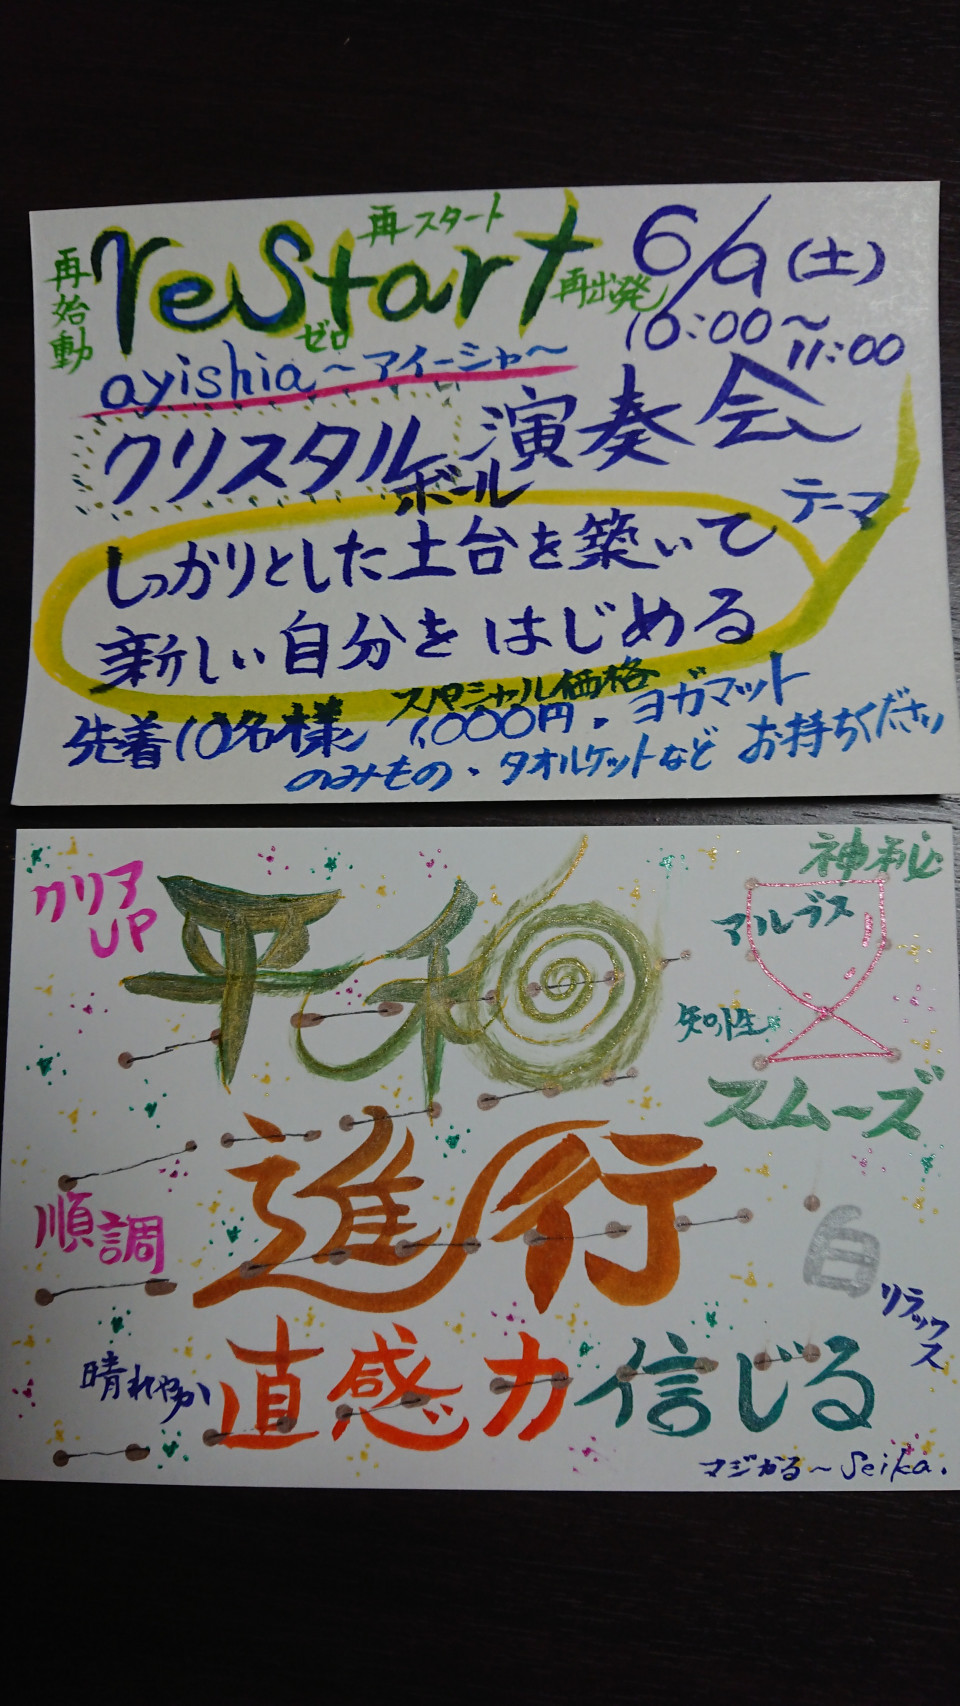 再始動
reStart
再スタート
ゼロ
再出発
6/9(土)
10:00〜
11:00
ayishia〜アイーシャ〜
クリスタルボール演奏会
テーマ
しっかりとした土台を築いて
新しい自分をはじめる
先着10名様
スペシャル価格
1,000円・ヨガマット
のみもの・タオルケットなど お持ちください
クリアUP
平和
神秘
アルデス
知性
スムーズ
順調
進行
白
リラックス
晴れやか
直感力信じる
マジかる〜Seika.